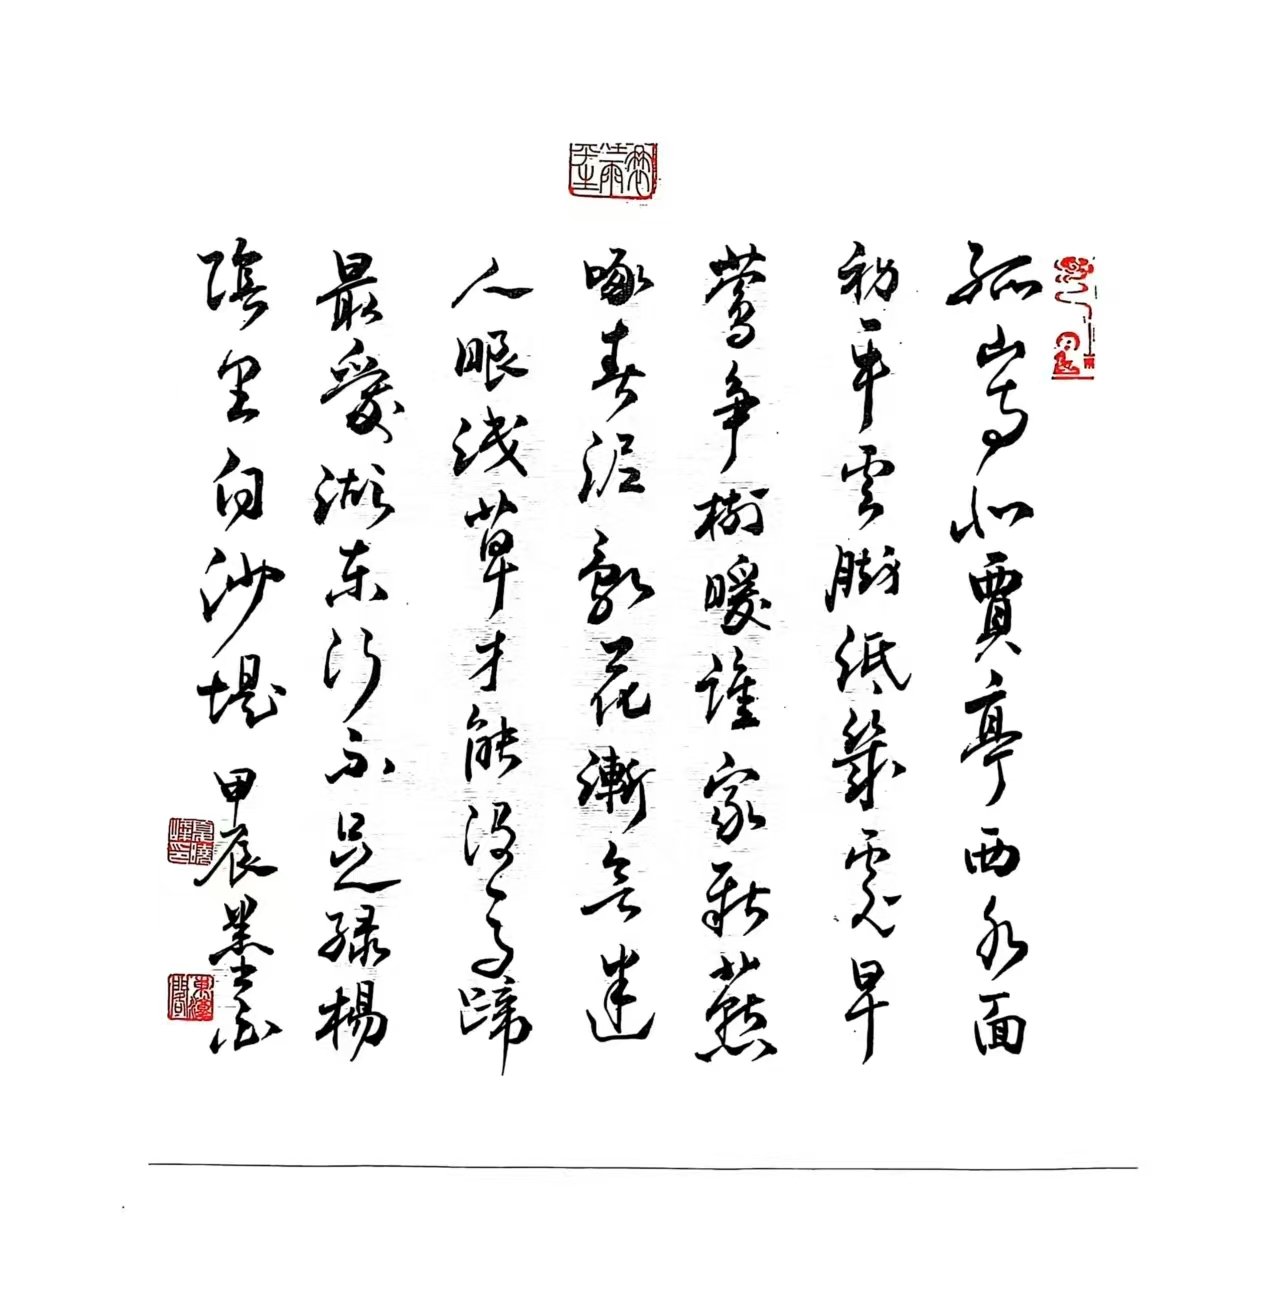 孤山寺北賈亭西水面
初平雲脚低幾處早
莺争樹暖誰家新燕
啄春泥亂花漸欲迷
人眼浅草才能没马蹄
最愛湖东行不足绿楊
陰里白沙堤 甲辰